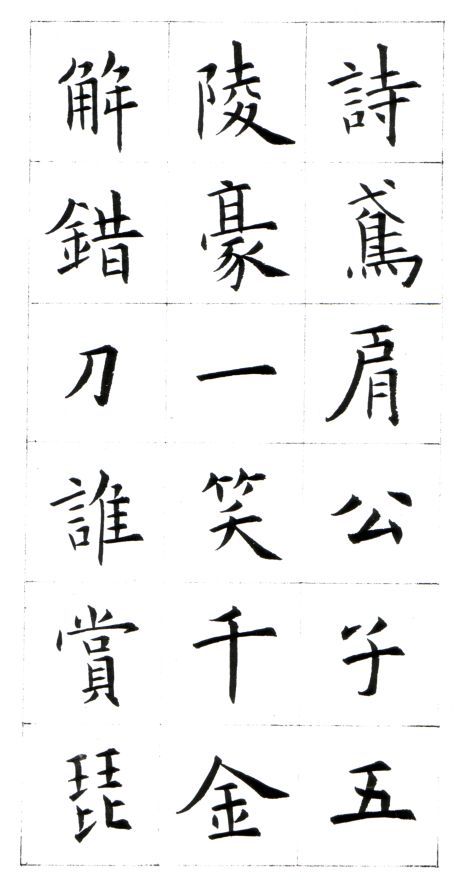 詩鳶肩公子五
陵豪一笑千金
解錯刀誰賞琵